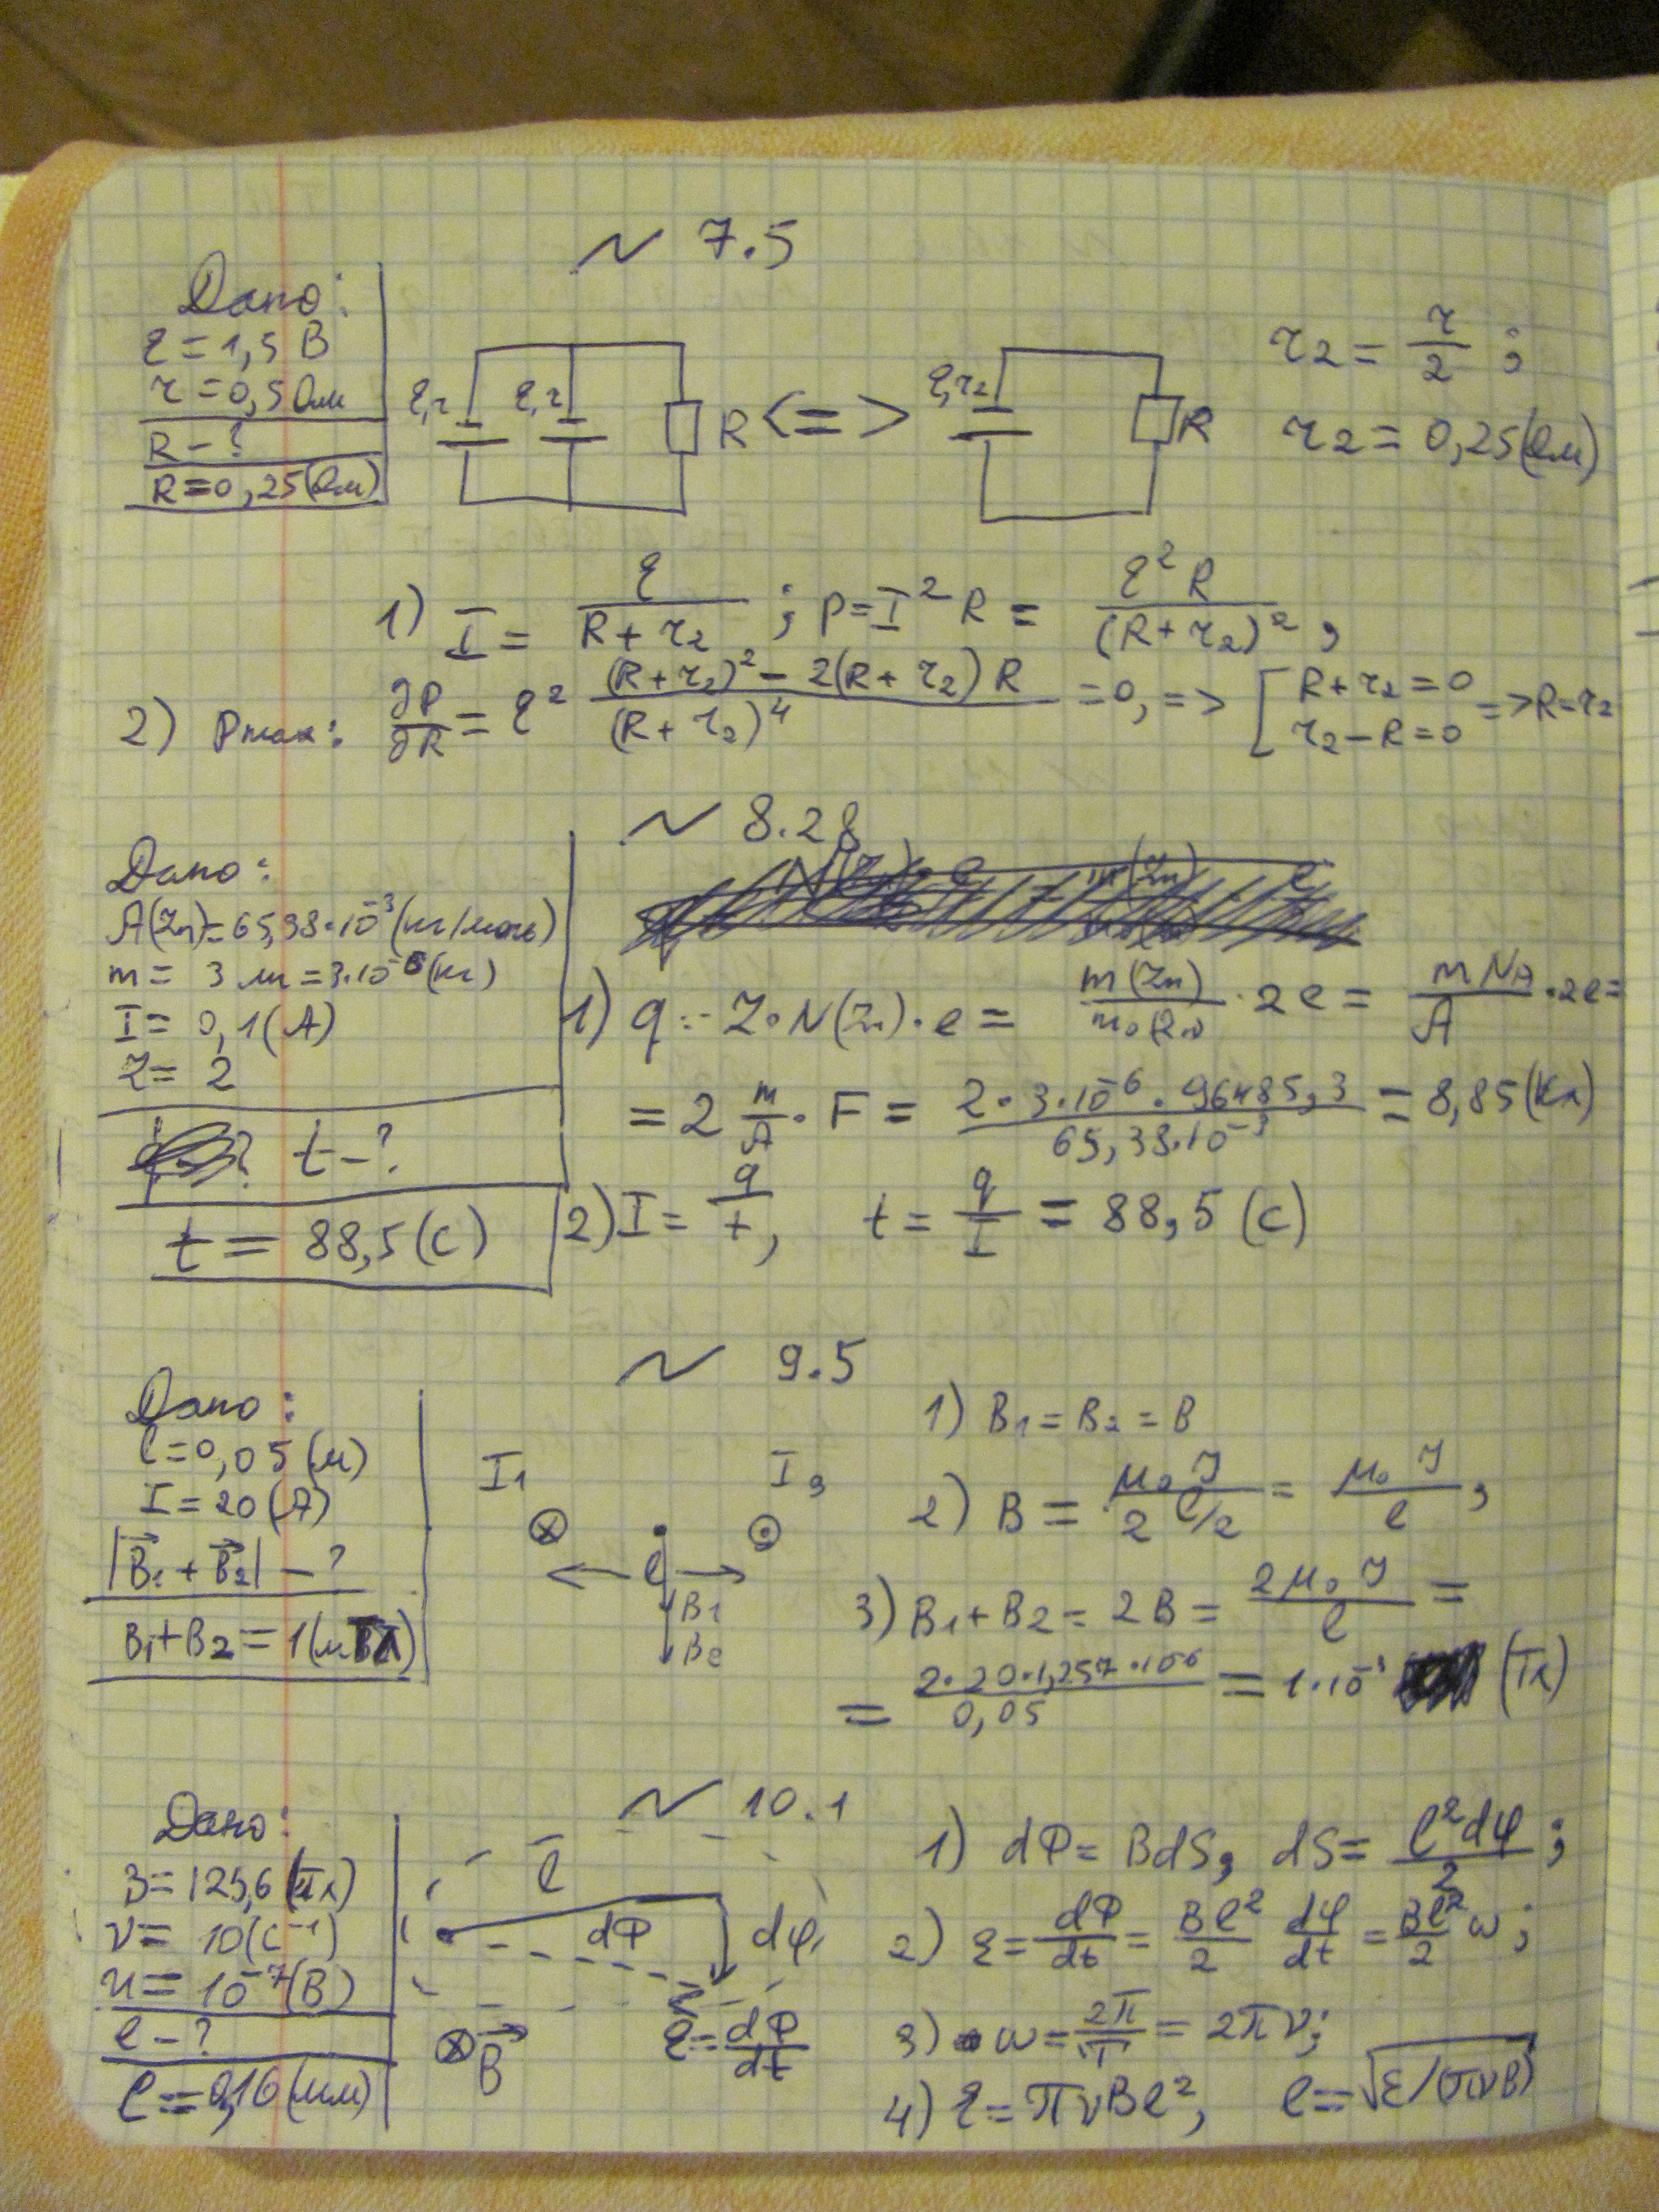 ~ 7.5
Дано:
ε = 1,5 В
r = 0,5 Ом
R - ?
R = 0,25 (Ом)
ε, r ε, r R <=> ε, r₂ R
r₂ = r/2 ;
r₂ = 0,25 (Ом)
1) I = ε/(R + r₂) ; P = I² R = ε² R/(R + r₂)² ,
2) Pmax: ∂P/∂R = ε² ((R + r₂)² - 2(R + r₂) R)/(R + r₂)⁴ = 0, => [ R + r₂ = 0 r₂ - R = 0 => R = r₂
~ 8.28
Дано:
A(Zn) = 65,38·10⁻³ (кг/моль)
m = 3 мг = 3·10⁻⁶ (кг)
I = 0,1 (А)
Z = 2
t - ?
t = 88,5 (с)
1) q = Z·N(Zn)·e = m(Zn)/m₀(Zn) · 2e = m N_A/A · 2e =
= 2 m/A · F = 2·3·10⁻⁶·96485,3/65,38·10⁻³ = 8,85 (Кл)
2) I = q/t, t = q/I = 88,5 (с)
~ 9.5
Дано:
l = 0,05 (м)
I = 20 (А)
|B⃗₁ + B⃗₂| - ?
B₁ + B₂ = 1 (мТл)
I₁ I₂
l
B₁
B₂
1) B₁ = B₂ = B
2) B = μ₀ J/(2 l/2) = μ₀ J/l ,
3) B₁ + B₂ = 2B = 2 μ₀ J/l =
= 2·20·1,257·10⁻⁶/0,05 = 1·10⁻³ (Тл)
~ 10.1
Дано:
B = 125,6 (Тл)
ν = 10 (с⁻¹)
u = 10⁻⁷ (В)
l - ?
l = 0,16 (мм)
l
dΦ dφ
B⃗ ε = dΦ/dt
1) dΦ = BdS, dS = l²dφ/2 ;
2) ε = dΦ/dt = Bl²/2 dφ/dt = Bl²/2 ω ;
3) ω = 2π/T = 2πν ;
4) ε = πνBl², l = √(ε/(πνB))